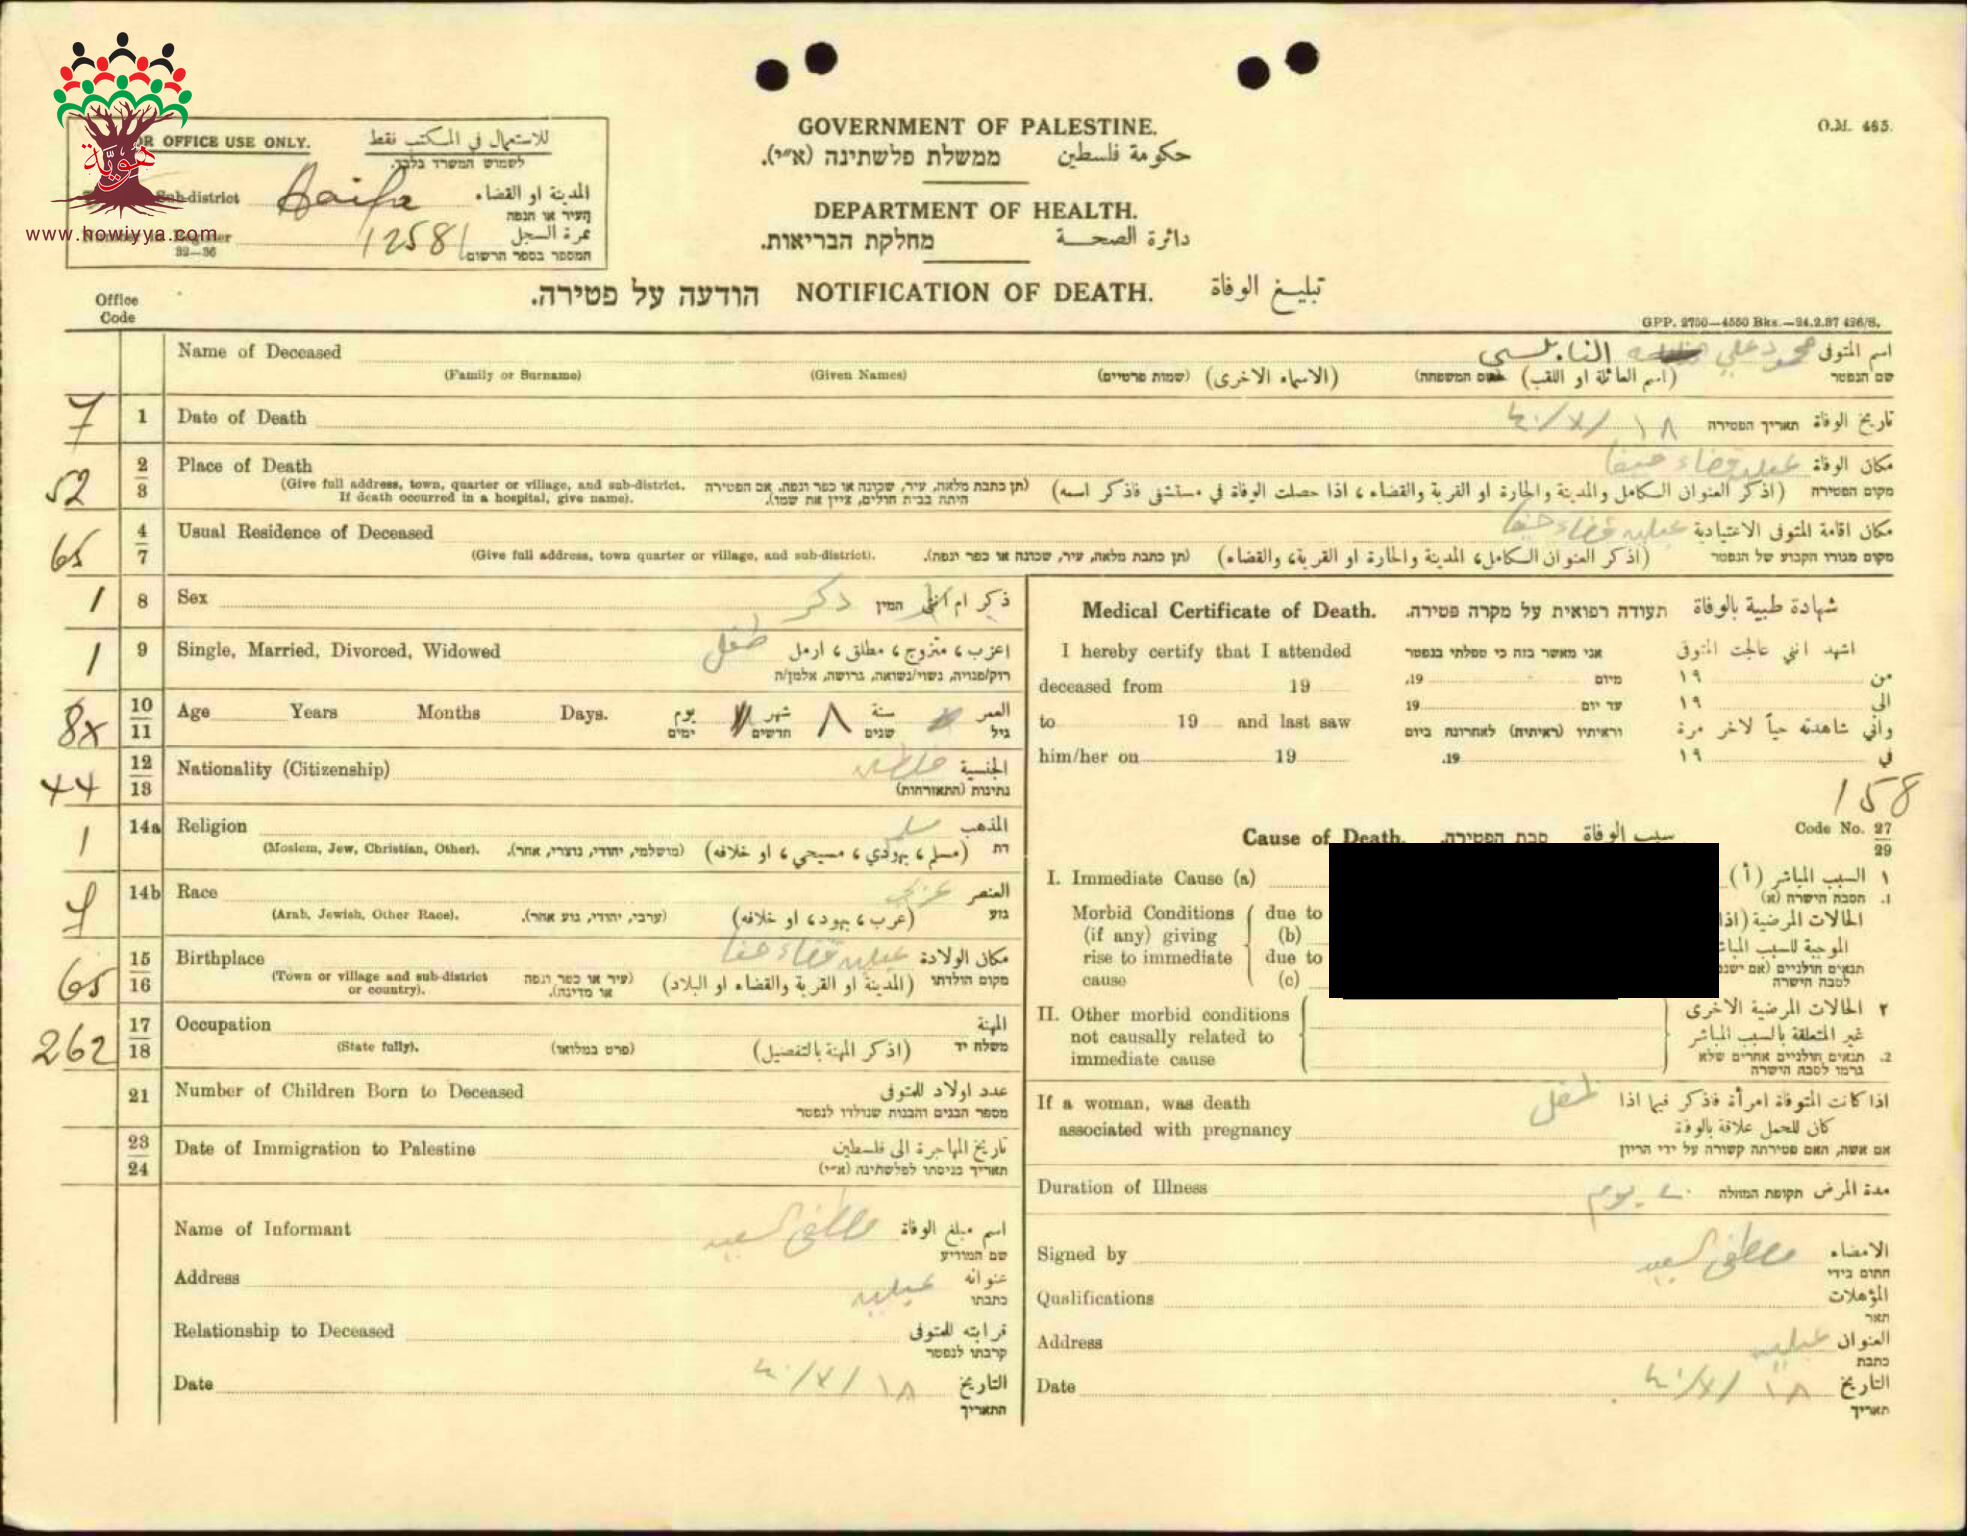 هوية
www.howiyya.com
FOR OFFICE USE ONLY. للاستعمال في المكتب نقط
לשמוש המשרד בלבד.
Sub-district Haifa المدينة او القضاء
העיר או הנפה
Number in Register 12581 نمرة السجل
32—36 המספר בספר הרשום
GOVERNMENT OF PALESTINE.
ממשלת פלשתינה (א״י). حكومة فلسطين
DEPARTMENT OF HEALTH.
מחלקת הבריאות. دائرة الصحة
O.M. 465.
הודעה על פטירה. NOTIFICATION OF DEATH. تبليغ الوفاة
Office
Code
GPP. 2750—4550 Bks.—24.2.37 426/S.
Name of Deceased محمود علي النابلسي اسم المتوفى
(Family or Surname) (Given Names) (שמות פרטיים) (الاسماء الاخرى) (שם המשפחה) (اسم العائلة او اللقب) שם הנפטר
7 1 Date of Death ١٨/٧/٤٠ תאריך הפטירה تاريخ الوفاة
52 2 3 Place of Death عبليه قضاء حيفا مكان الوفاة
(Give full address, town, quarter or village, and sub-district. (תן כתבת מלאה, עיר, שכונה או כפר ונפה. אם הפטירה
If death occurred in a hospital, give name). היתה בבית חולים, ציין את שמו). (اذكر العنوان الكامل والمدينة والحارة او القرية والقضاء، اذا حصلت الوفاة في مستشفى فاذكر اسمه) מקום הפטירה
65 4 7 Usual Residence of Deceased عبليه قضاء حيفا مكان اقامة المتوفى الاعتيادية
(Give full address, town quarter or village, and sub-district). (תן כתבת מלאה, עיר, שכונה או כפר ונפה). (اذكر العنوان الكامل، المدينة والحارة او القرية، والقضاء) מקום מגורו הקבוע של הנפטר
1 8 Sex ذكر המין ذكر ام انثى
1 9 Single, Married, Divorced, Widowed طفل اعزب، متزوج، مطلق، ارمل
רוק/פנויה, נשוי/נשואה, גרושה, אלמן/ה
8x 10 11 Age Years Months Days. يوم شهر ٨ سنة العمر
ימים חדשים שנים גיל
44 12 13 Nationality (Citizenship) الجنسية
נתינות (התאזרחות)
1 14a Religion مسلم المذهب
(Moslem, Jew, Christian, Other). (מושלמי, יהודי, נוצרי, אחר). (مسلم، يهودي، مسيحي، او خلافه) דת
14b Race عربي العنصر
(Arab, Jewish, Other Race). (ערבי, יהודי, גזע אחר). (عرب، يهود، او خلافه) גזע
65 15 16 Birthplace عبليه قضاء حيفا مكان الولادة
(Town or village and sub-district or country). (עיר או כפר ונפה או מדינה). (المدينة او القرية والقضاء او البلاد) מקום הולדתו
262 17 18 Occupation المهنة
(State fully). (פרט במלואו) (اذكر المهنة بالتفصيل) משלח יד
21 Number of Children Born to Deceased عدد اولاد للمتوفى
מספר הבנים והבנות שנולדו לנפטר
23 24 Date of Immigration to Palestine تاريخ المهاجرة الى فلسطين
תאריך כניסתו לפלשתינה (א״י)
Name of Informant مصطفى السعيد اسم مبلغ الوفاة
שם המודיע
Address عبليه عنوانه
כתבתו
Relationship to Deceased قرابته للمتوفى
קרבתו לנפטר
Date ١٨/٧/٤٠ التاريخ
התאריך
Medical Certificate of Death. תעודה רפואית על מקרה פטירה. شهادة طبية بالوفاة
I hereby certify that I attended אני מאשר בזה כי טפלתי בנפטר اشهد انني عالجت المتوفى
deceased from 19 מיום 19. من ١٩
to 19 and last saw עד יום 19 الى ١٩
וראיתיו (ראיתיה) לאחרונה ביום واني شاهدته حياً لآخر مرة
him/her on 19 19. في ١٩
158
Cause of Death. סבת הפטירה. سبب الوفاة Code No. 27 29
I. Immediate Cause (a) ١ السبب المباشر (أ)
1. הסבה הישרה (א)
Morbid Conditions due to الحالات المرضية (اذا
(if any) giving (b) الموجبة للسبب
rise to immediate due to תנאים חולניים (אם
cause (c) לסבה הישרה
II. Other morbid conditions ٢ الحالات المرضية الاخرى
not causally related to غير المتعلقة بالسبب المباشر
immediate cause 2. תנאים חולניים אחרים שלא
גרמו לסבה הישרה
If a woman, was death طفل اذا كانت المتوفاة امرأة فاذكر فيما اذا
associated with pregnancy كان للحمل علاقة بالوفاة
אם אשה, האם פטירתה קשורה על ידי הריון
Duration of Illness ٢٠ يوم תקופת המחלה مدة المرض
Signed by مصطفى السعيد الامضاء
חתום בידי
Qualifications المؤهلات
תאר
Address عبليه العنوان
כתבת
Date ١٨/٧/٤٠ التاريخ
תאריך